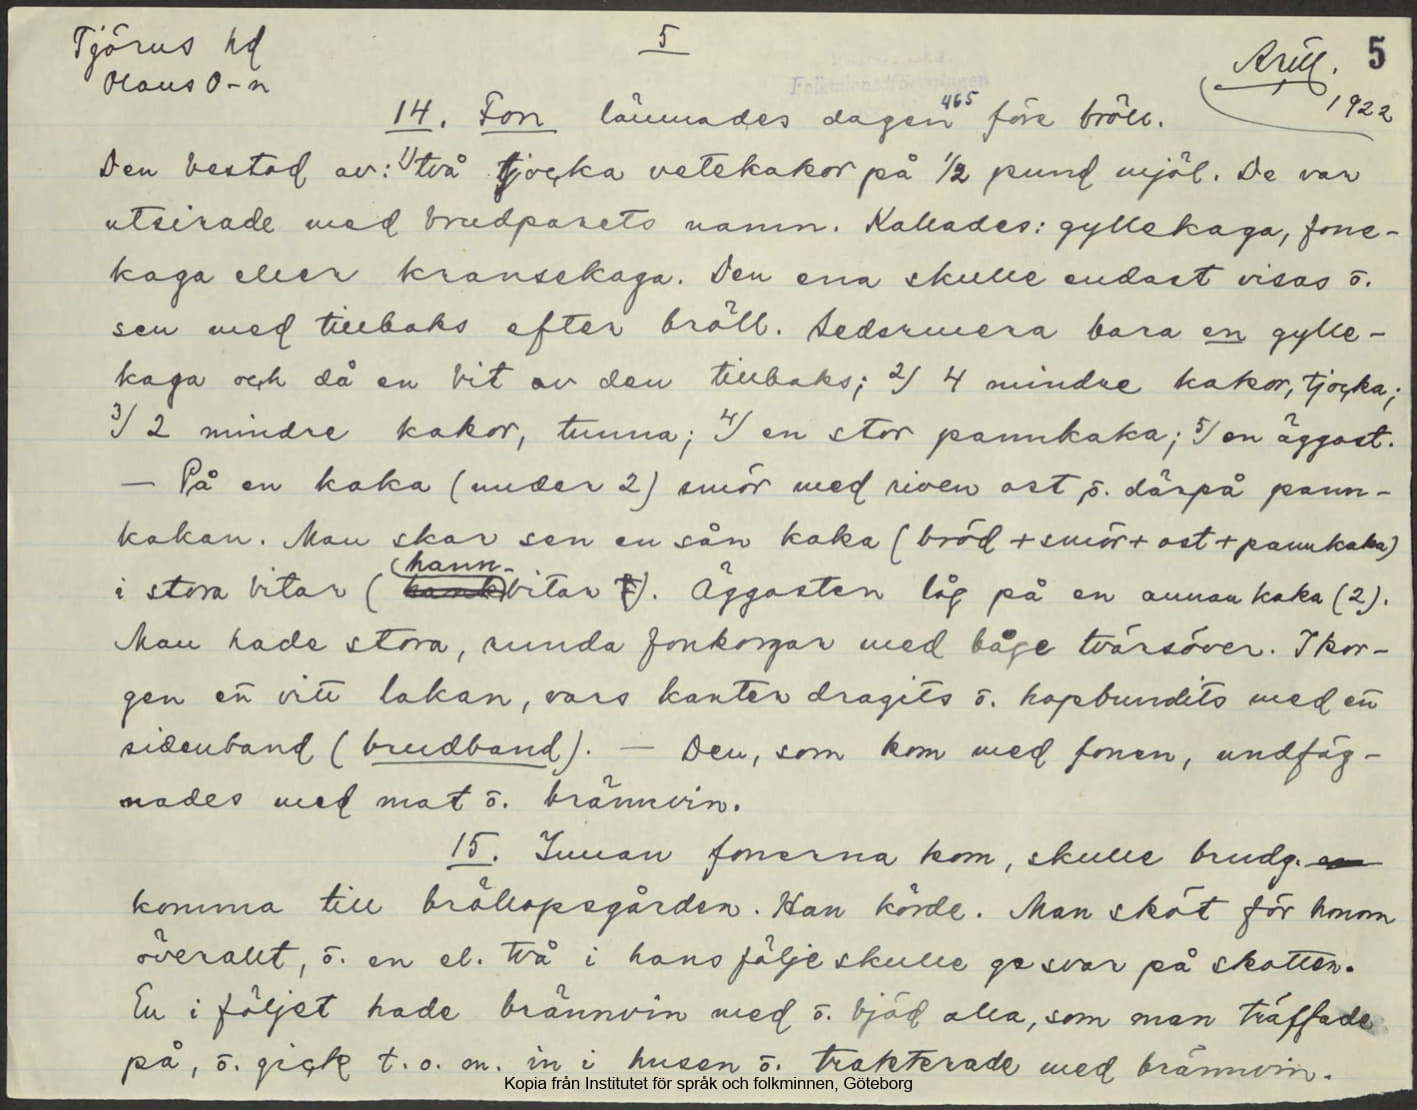 Tjörns hd
Olaus O-n
5
Arill. 5
1922
Folkminnesföreningen
465
14. Fon lämnades dagen före bröll.
Den bestod av: 1/ två tjocka vetekakor på 1/2 pund mjöl. De var
utsirade med brudparets namn. Kallades: gyllekaga, fone-
kaga eller kransekaga. Den ena skulle endast visas o.
sen med tillbaks efter bröll. Sedermera bara en gylle-
kaga och då en bit av den tillbaks; 2/ 4 mindre kakor, tjocka;
3/ 2 mindre kakor, tunna; 4/ en stor pannkaka; 5/ en äggost.
— På en kaka (under 2) smör med riven ost, o. därpå pann-
kakan. Man skar sen en sån kaka (bröd + smör + ost + pannkaka)
i stora bitar (hann-bitar). Äggosten låg på en annan kaka (2).
Man hade stora, runda fonkorgar med båge tvärsöver. I kor-
gen ett vitt lakan, vars kanter dragits o. hopbundits med ett
sidenband (brudband). — Den, som kom med fonen, undfäg-
nades med mat o. brännvin.
15. Innan fonerna kom, skulle brudg.
komma till bröllopsgården. Han körde. Man sköt för honom
överallt, o. en el. två i hans följe skulle ge svar på skotten.
En i följet hade brännvin med o. bjöd alla, som man träffade
på, o. gick t. o. m. in i husen o. trakterade med brännvin.
Kopia från Institutet för språk och folkminnen, Göteborg